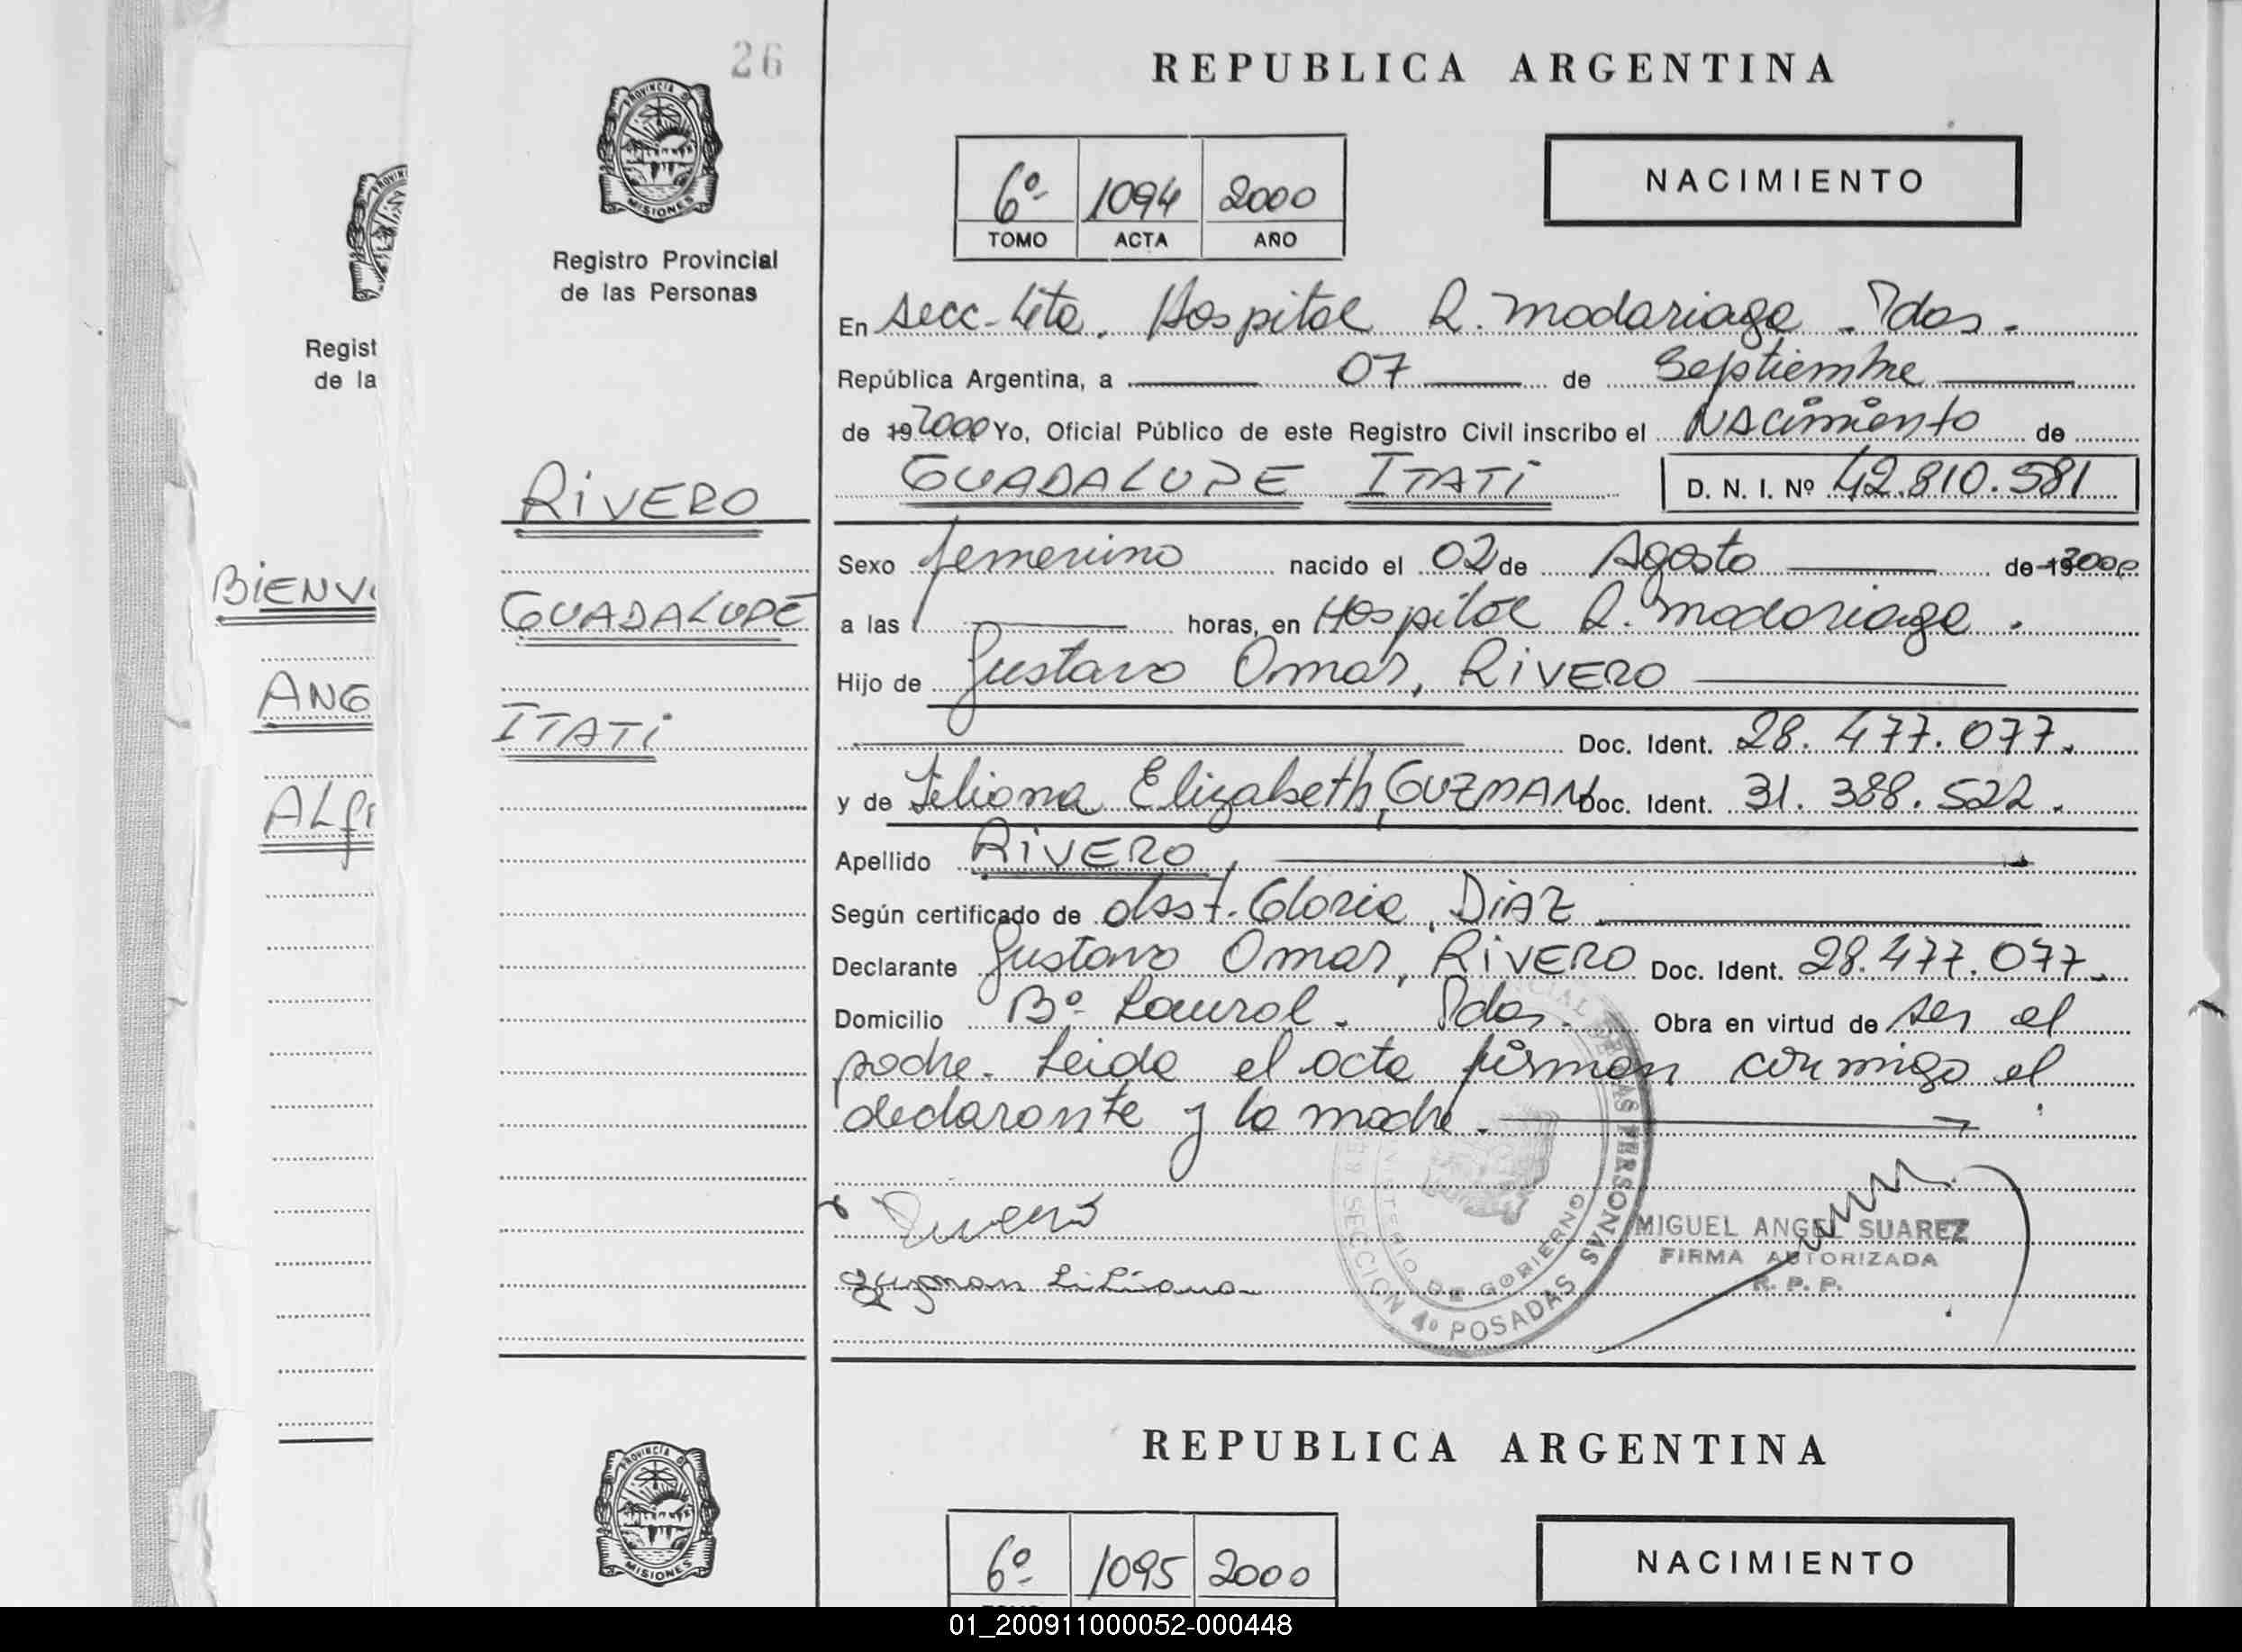 26
PROVINCIA DE
MISIONES
Registro Provincial
de las Personas
Regist
de la
BiENV
ANG
ALf
RiVERO
GUADALUPE
ITATi
REPUBLICA ARGENTINA
6º 1094 2000
TOMO ACTA AÑO
NACIMIENTO
En Secc-4ta. Hospital R. Madariaga - Pdas.
República Argentina, a 07 de Septiembre
de 19 2000 Yo, Oficial Público de este Registro Civil inscribo el Nacimiento de
GUADALUPE ITATi D. N. I. Nº 42.810.581
Sexo femenino nacido el 02 de Agosto de 19 2000
a las horas, en Hospital R. Madariaga.
Hijo de Gustavo Omar, RiVERO
Doc. Ident. 28.477.077.
y de Liliana Elizabeth, GUZMAN Doc. Ident. 31.388.522.
Apellido RiVERO,
Según certificado de obst. Gloria, DiAZ
Declarante Gustavo Omar, RiVERO Doc. Ident. 28.477.077.
Domicilio Bº Laurel. Pdas. Obra en virtud de ser el
padre. Leida el acta firman conmigo el
declarante y la madre.
Guzman Liliana
MIGUEL ANGEL SUAREZ
FIRMA AUTORIZADA
R. P. P.
MINISTERIO DE GOBIERNO
SECCION 4º POSADAS
PROVINCIA DE
MISIONES
REPUBLICA ARGENTINA
6º 1095 2000
NACIMIENTO
01_200911000052-000448